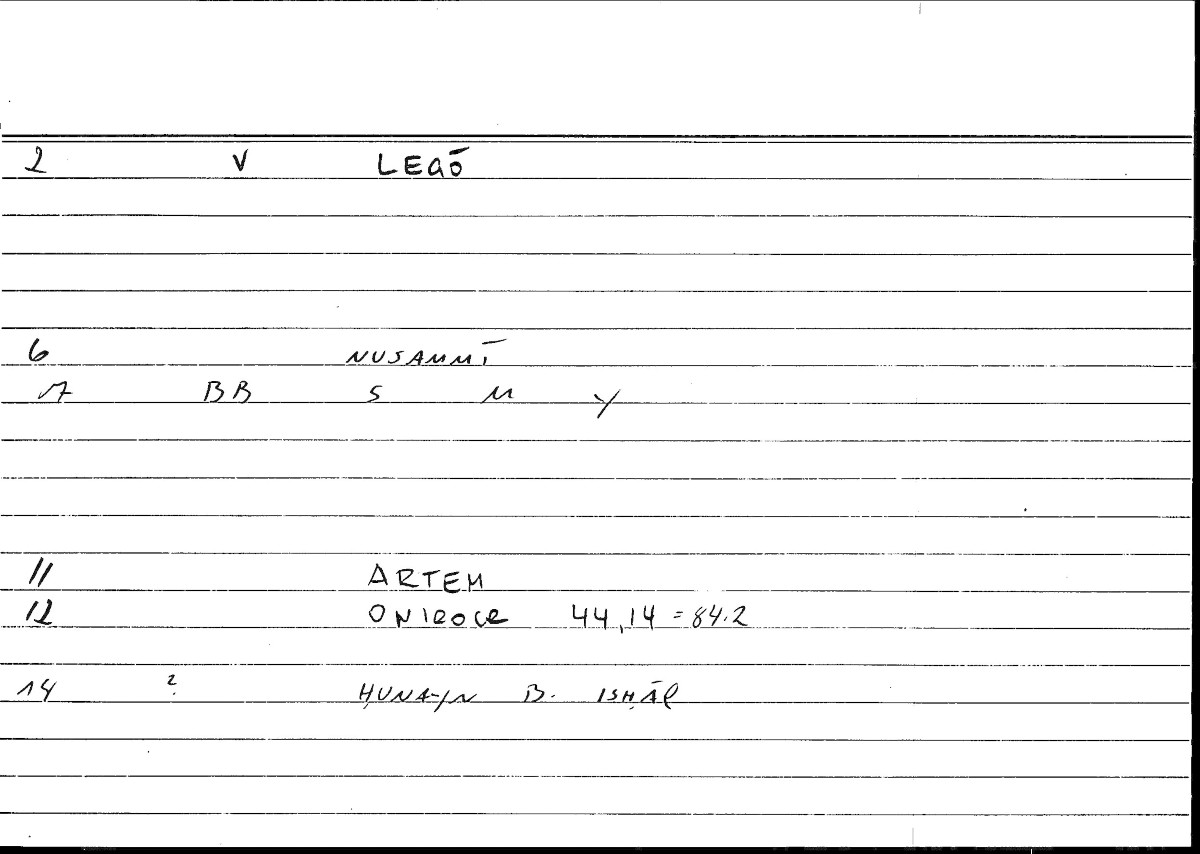 2 V LEGŌ
6 NUSAMMĪ
7 BB S M Y
11 ARTEM
12 ONIROCR 44,14 = 84.2
14 ? ḤUNAYN B. ISḤĀQ